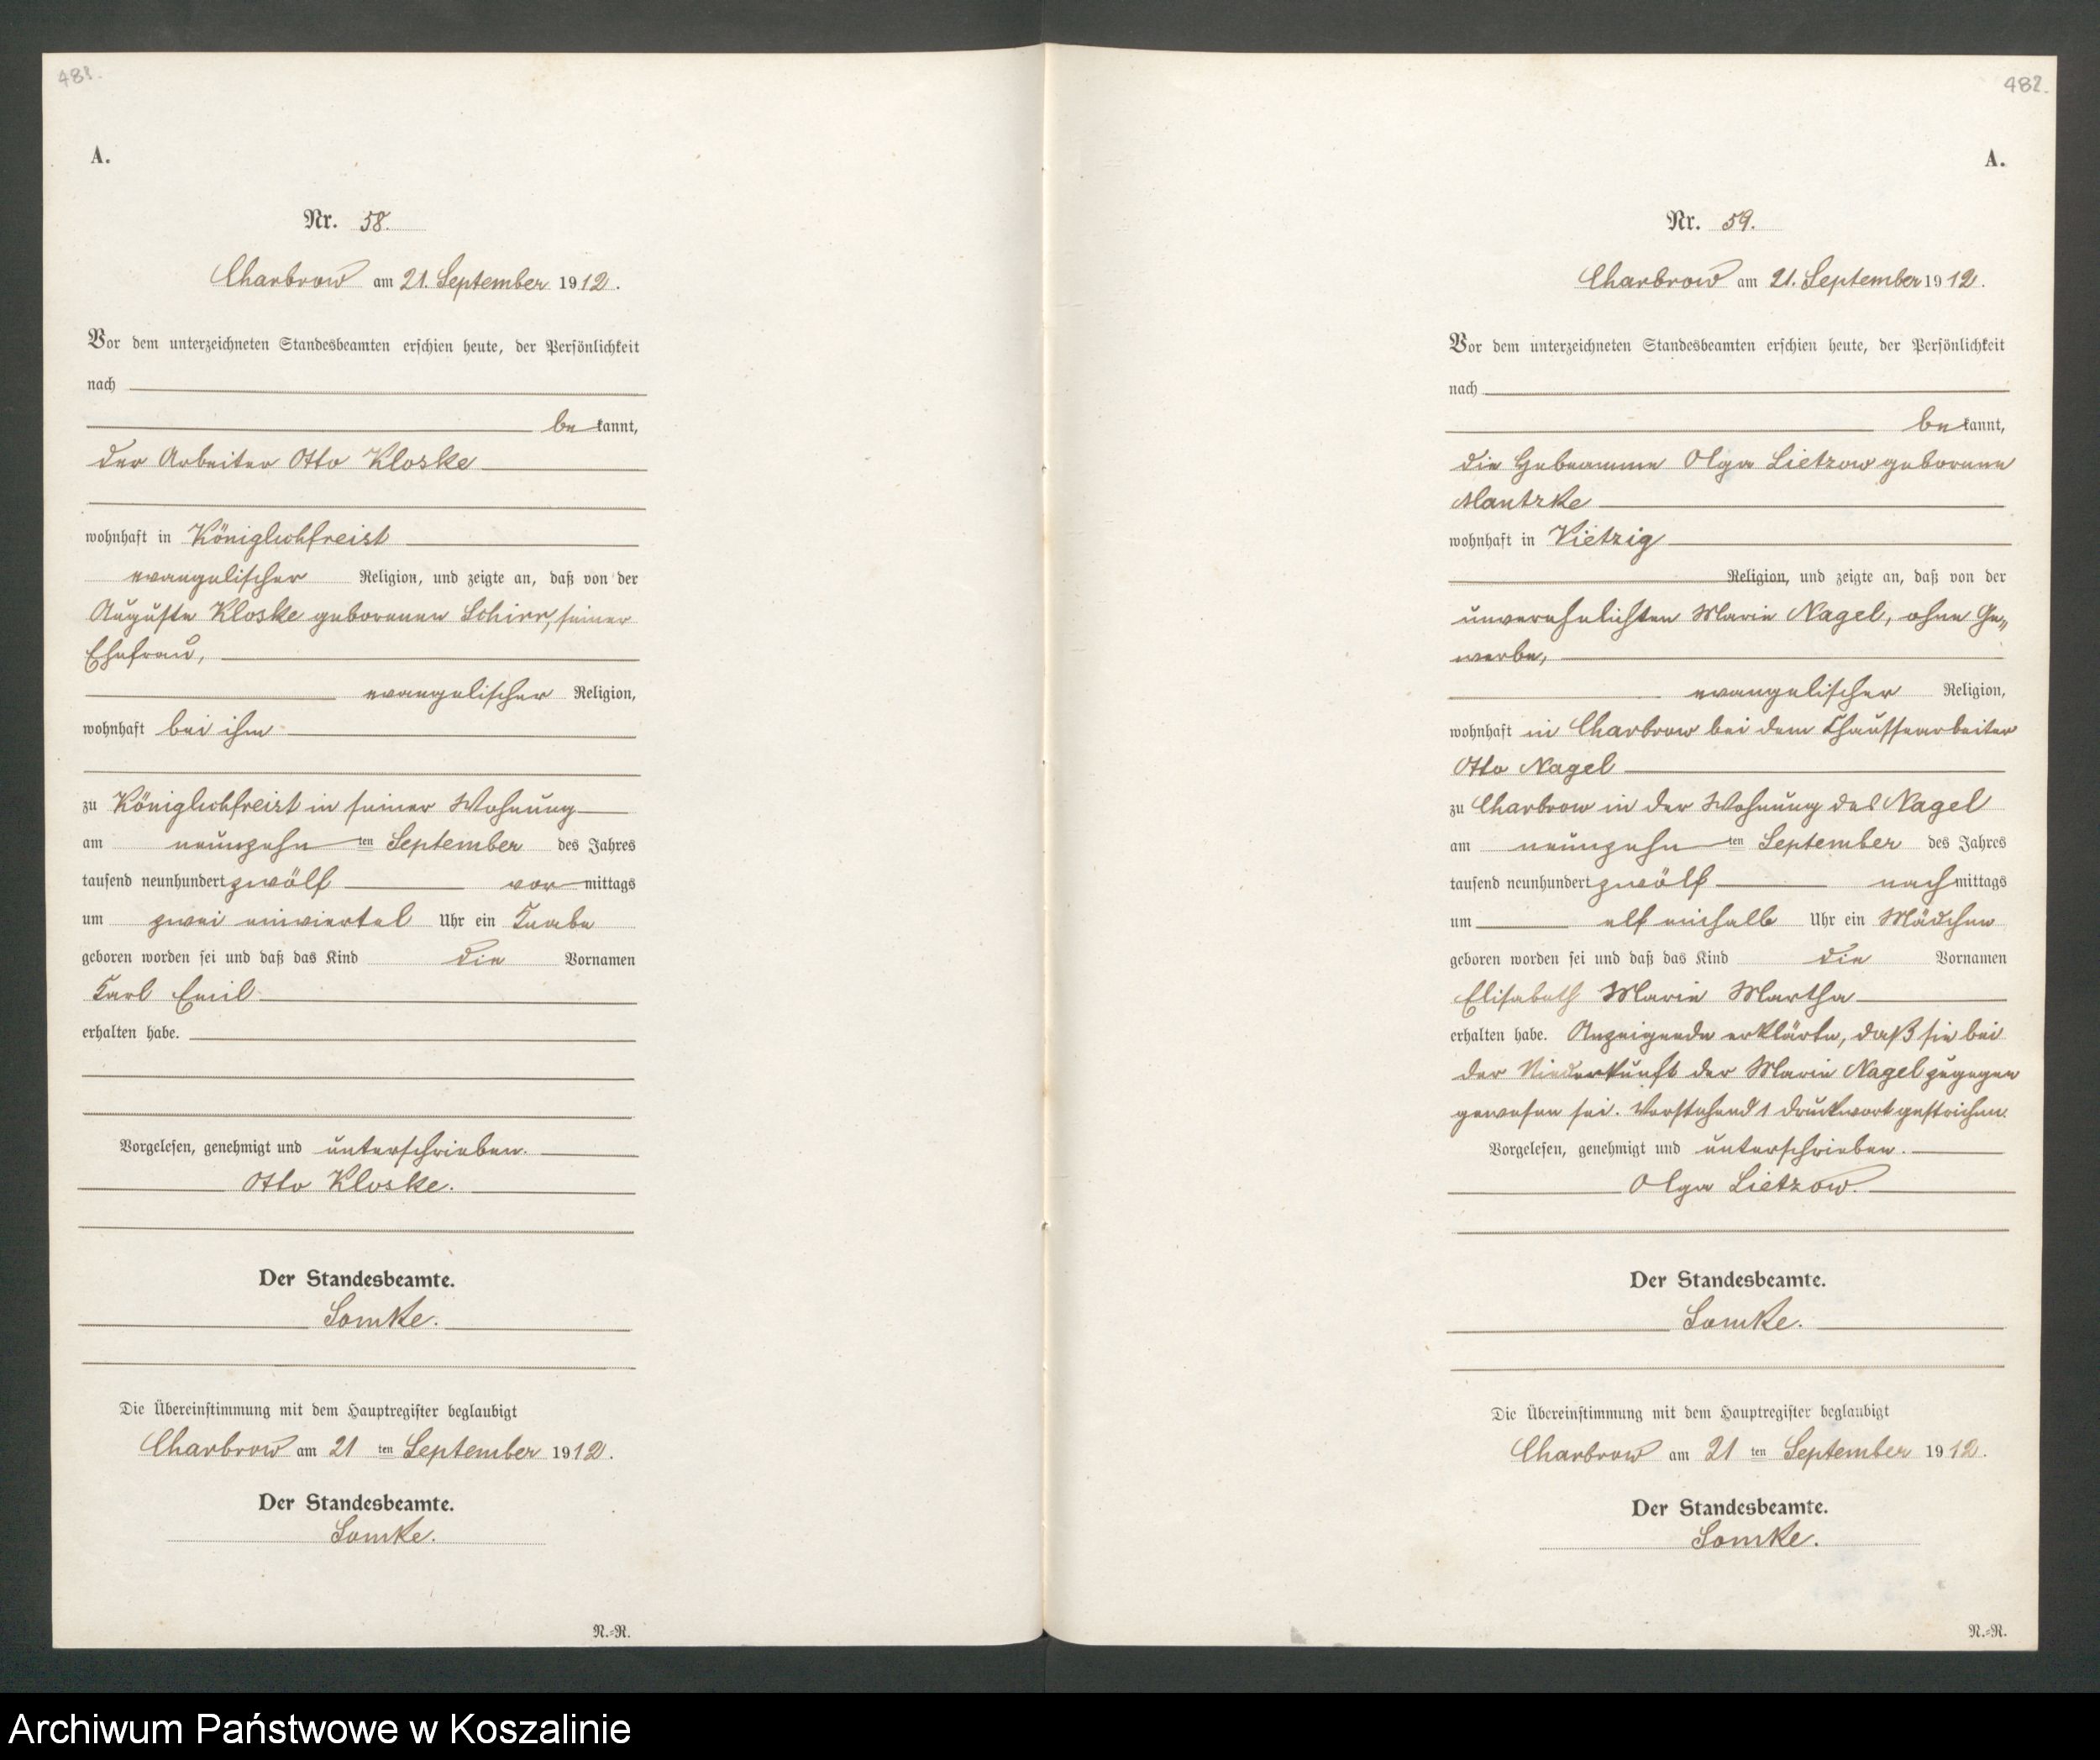 481.
A.
Nr. 58.
Charbrow am 21. September 1912.
Vor dem unterzeichneten Standesbeamten erschien heute, der Persönlichkeit
nach
bekannt,
der Arbeiter Otto Kloske
wohnhaft in Königlichfreist
evangelischer Religion, und zeigte an, daß von der
Auguste Kloske geborenen Schirr, seiner
Ehefrau,
evangelischer Religion,
wohnhaft bei ihm
zu Königlichfreist in seiner Wohnung
am neunzehnten September des Jahres
tausend neunhundert zwölf vormittags
um zwei einviertel Uhr ein Knabe
geboren worden sei und daß das Kind die Vornamen
Karl Emil
erhalten habe.
Vorgelesen, genehmigt und unterschrieben.
Otto Kloske.
Der Standesbeamte.
Somke.
Die Übereinstimmung mit dem Hauptregister beglaubigt
Charbrow am 21 ten September 1912.
Der Standesbeamte.
Somke.
N.=R.
482.
A.
Nr. 59.
Charbrow am 21. September 1912.
Vor dem unterzeichneten Standesbeamten erschien heute, der Persönlichkeit
nach
bekannt,
die Hebeamme Olga Lietzow geborene
Mantzke
wohnhaft in Vietzig
Religion, und zeigte an, daß von der
unverehelichten Marie Nagel, ohne Ge„
werbe,
evangelischer Religion,
wohnhaft in Charbrow bei dem Chausseearbeiter
Otto Nagel
zu Charbrow in der Wohnung des Nagel
am neunzehnten September des Jahres
tausend neunhundert zwölf nachmittags
um elf einhalb Uhr ein Mädchen
geboren worden sei und daß das Kind die Vornamen
Elisabeth Marie Martha
erhalten habe. Anzeigende erklärte, daß sie bei
der Niederkunft der Marie Nagel zugegen
gewesen sei. Vorstehend 1 Druckwort gestrichen.
Vorgelesen, genehmigt und unterschrieben.
Olga Lietzow.
Der Standesbeamte.
Somke.
Die Übereinstimmung mit dem Hauptregister beglaubigt
Charbrow am 21 ten September 1912.
Der Standesbeamte.
Somke.
N.=R.
Archiwum Państwowe w Koszalinie